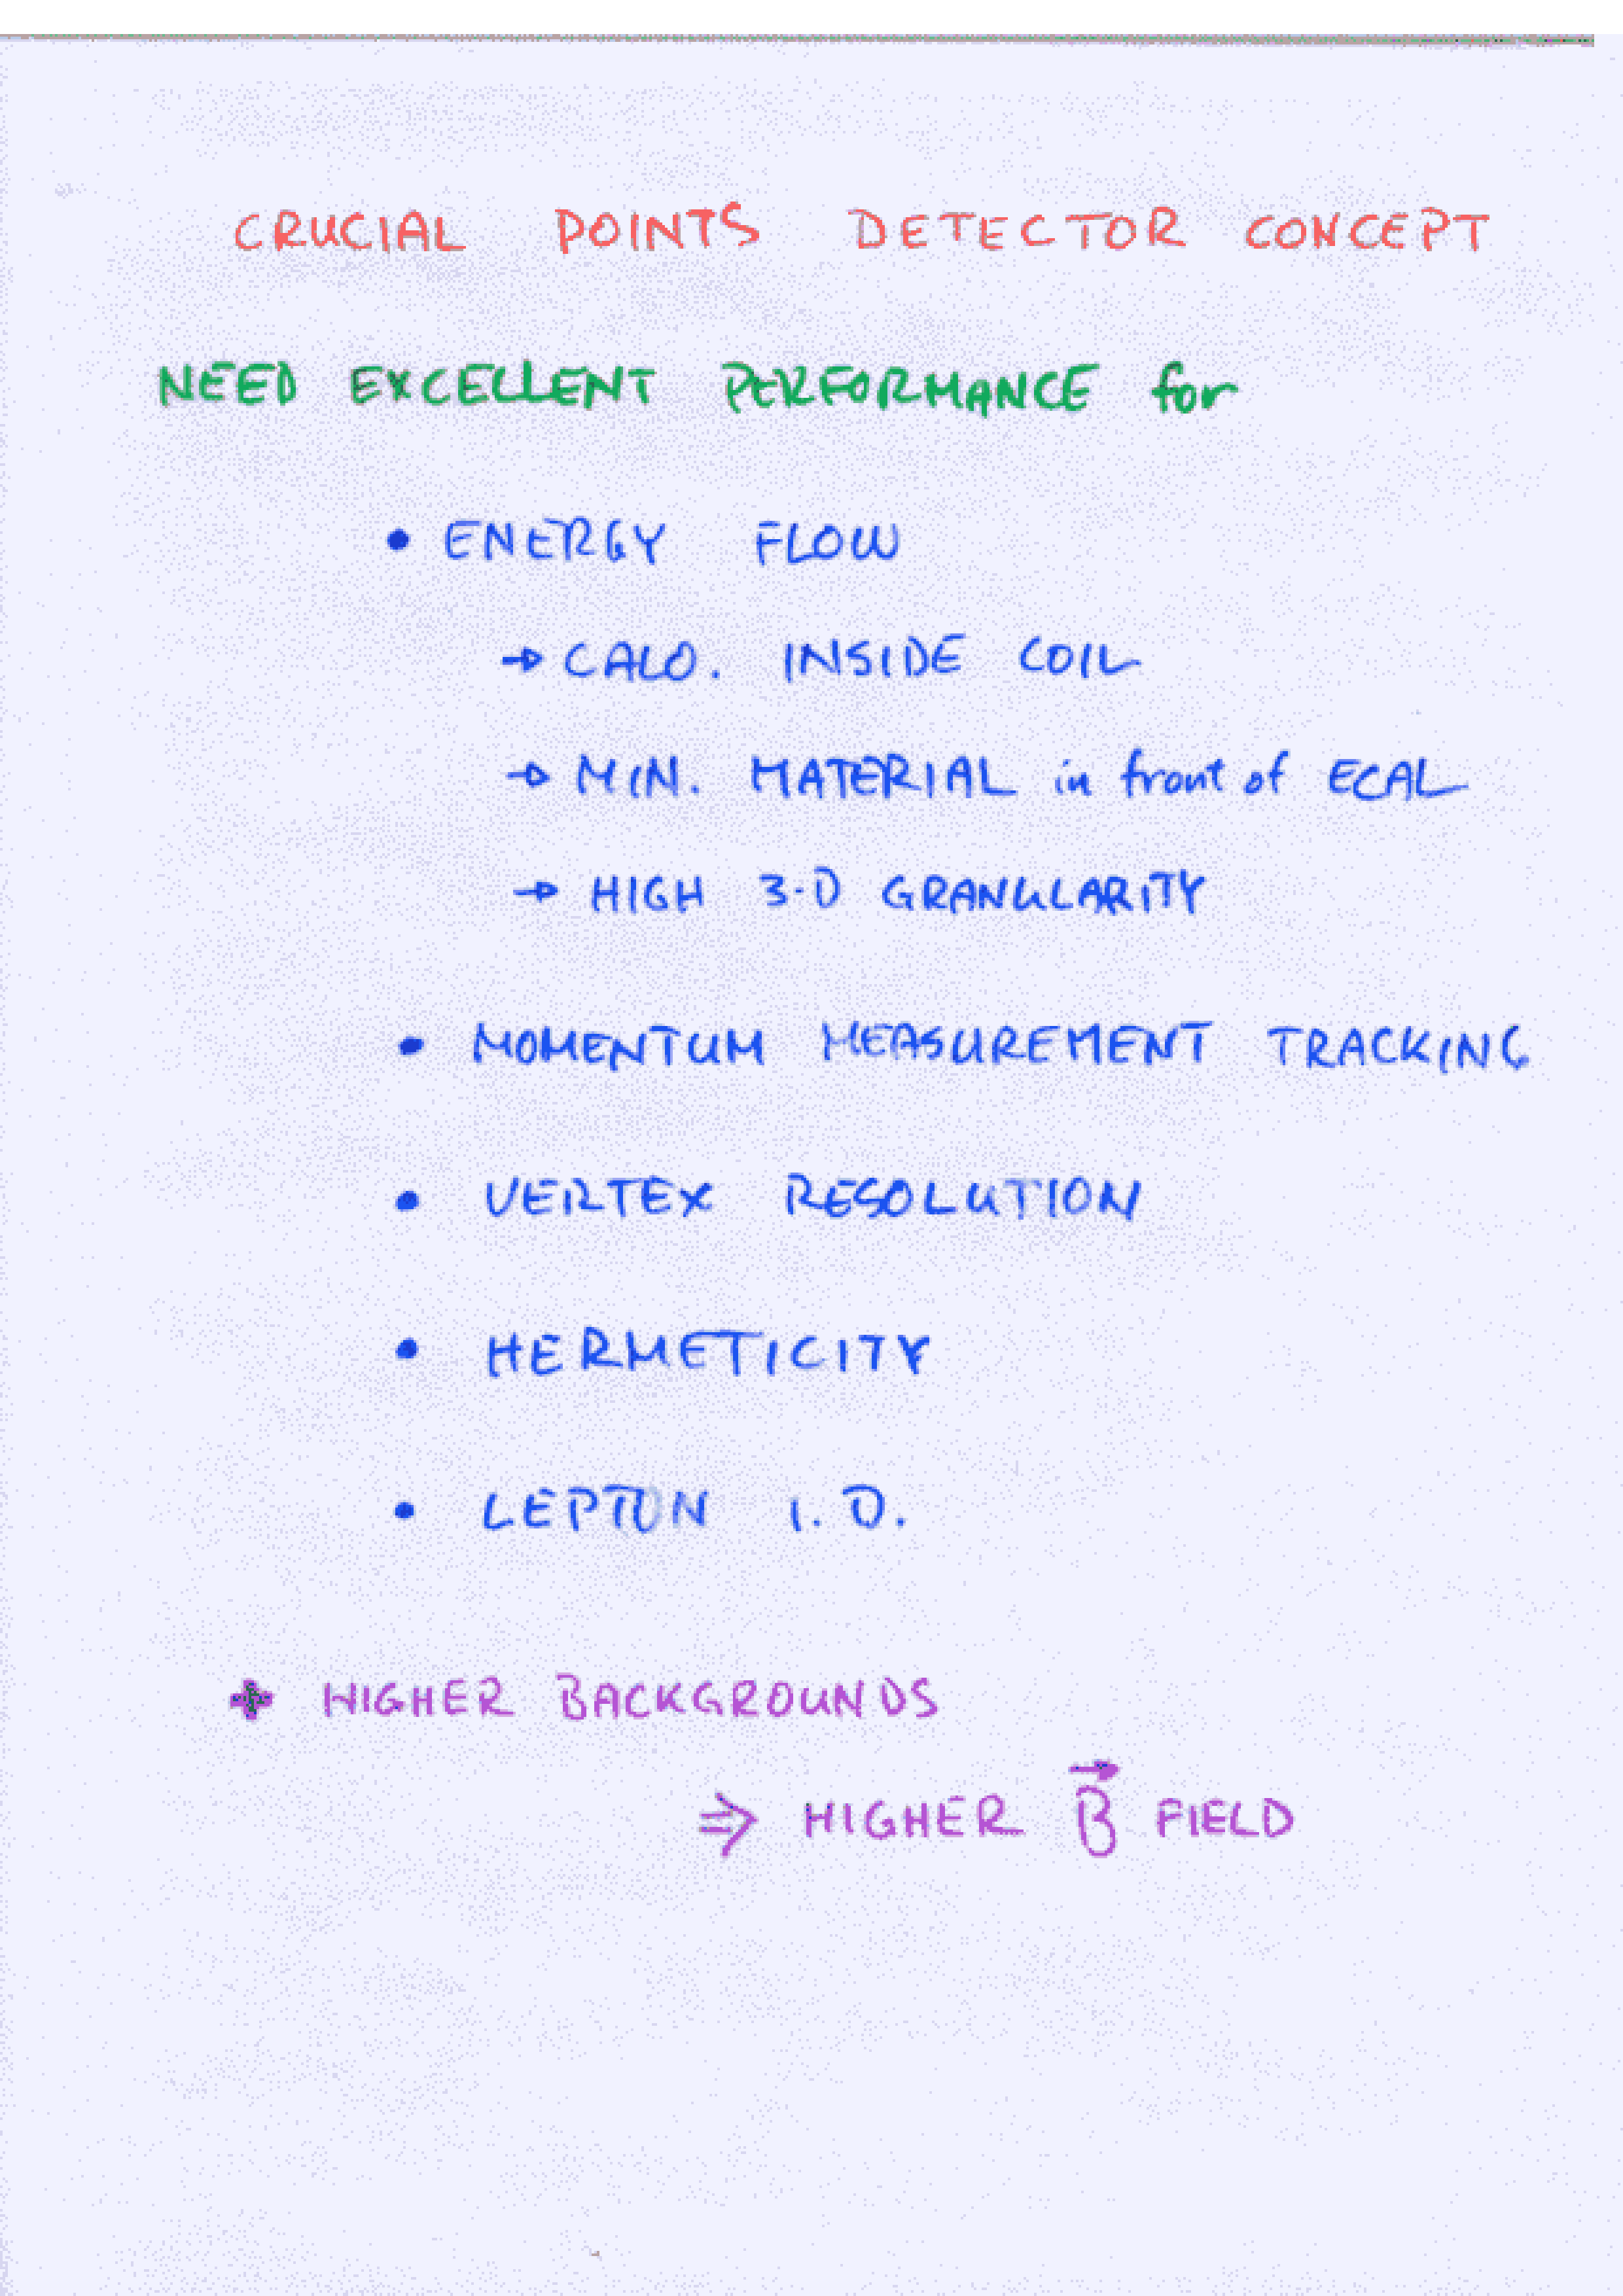 CRUCIAL POINTS DETECTOR CONCEPT
NEED EXCELLENT PERFORMANCE for
• ENERGY FLOW
→ CALO. INSIDE COIL
→ MIN. MATERIAL in front of ECAL
→ HIGH 3-D GRANULARITY
• MOMENTUM MEASUREMENT TRACKING
• VERTEX RESOLUTION
• HERMETICITY
• LEPTON I.D.
+ HIGHER BACKGROUNDS
⇒ HIGHER B⃗ FIELD